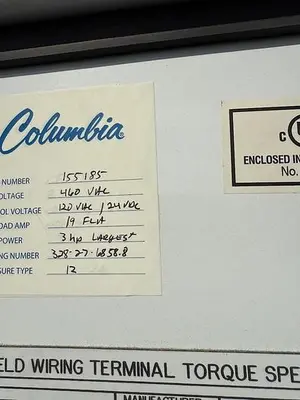 Columbia
NUMBER 155185
OLTAGE 460 VAC
OL VOLTAGE 120 VAC / 24 VDC
OAD AMP 19 FLA
POWER 3 hp LARGEST
NG NUMBER 328-27-6858.8
SURE TYPE 12
C U
ENCLOSED IN
No.
ELD WIRING TERMINAL TORQUE SPE
MANUFACTURER